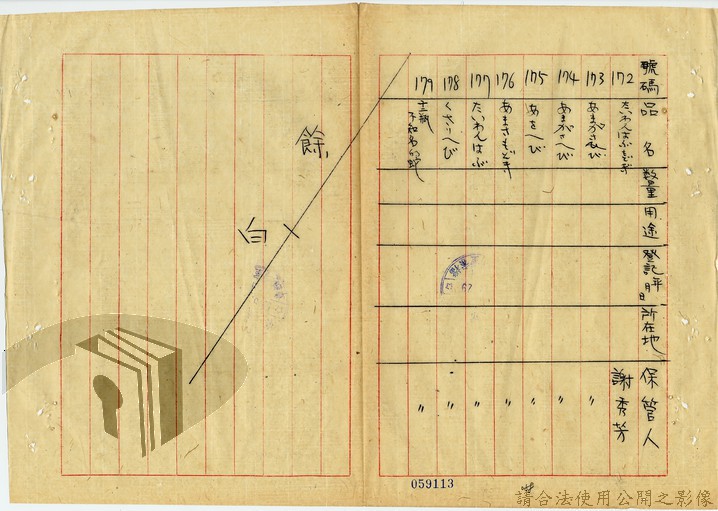 號碼 品名 數量 用途 登記年月日 所在地 保管人
172 たいわんはぶもどき 謝秀芳
173 あまがさへび 〃
174 あまがさへび 〃
175 あをへび 〃
176 あまさもどき 〃
177 たいわんはぶ 〃
178 くさりへび 〃
179 不知名ノ蛇 〃
餘
白
059113
請合法使用公開之影像